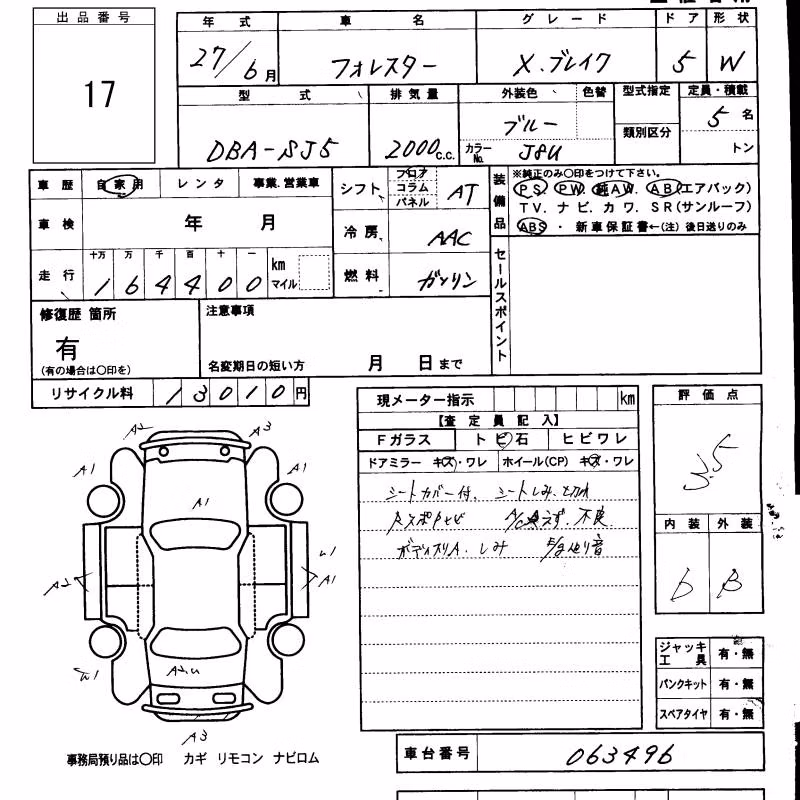 出品番号
17
年式 車名 グレード ドア 形状
27/6月 フォレスター X.ブレイク 5 W
型式 排気量 外装色 色替 型式指定 定員・積載
DBA-SJ5 2000c.c. ブルー 5名
カラーNo. J8U 類別区分 トン
車歴 自家用 レンタ 事業.営業車
シフト フロア コラム パネル AT
装備品 ※純正のみ○印をつけて下さい。
PS PW. 純AW. AB(エアバック)
TV. ナビ. カワ. SR(サンルーフ)
ABS ・ 新車保証書←(注)後日送りのみ
車検 年 月
冷房 AAC
走行 十万 万 千 百 十 一
164400 km マイル
燃料 ガソリン
セールスポイント
修復歴 箇所
有
(有の場合は○印を)
注意事項
名変期日の短い方 月 日まで
リサイクル料 13010円
現メーター指示 km
【査定員記入】
Fガラス トビ石 ヒビワレ
ドアミラー キズ・ワレ ホイール(CP) キズ・ワレ
シートカバー付、シートしみ
不良
しみ 音
評価点
3.5
内装 外装
b B
A2 A3
A1 A1
A1
A2 A1
A2.u
A3
ジャッキ工具 有・無
パンクキット 有・無
スペアタイヤ 有・無
事務局預り品は○印 カギ リモコン ナビロム
車台番号 063496